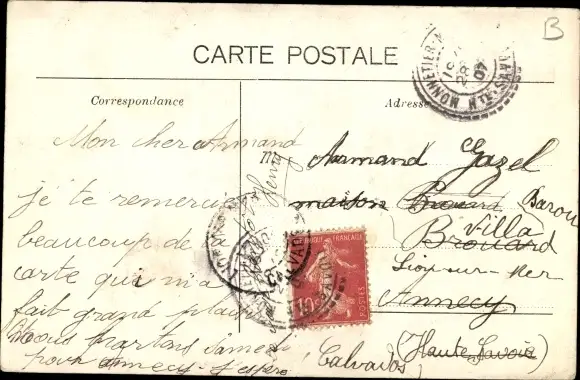 B
CARTE POSTALE
Correspondance
Adresse
MONNETIER
HTE-SAVOIE
28
07
Mon cher Armand
je te remercie
beaucoup de ta
carte qui m'a
fait grand plaisir
Nous partons Samedi
pour Annecy
Henry
M. Armand Gazel
maison Brouard Baron
Villa
Brouard
Lion-sur-Mer
Annecy
Calvados
(Haute Savoie)
RÉPUBLIQUE FRANÇAISE
10
POSTES